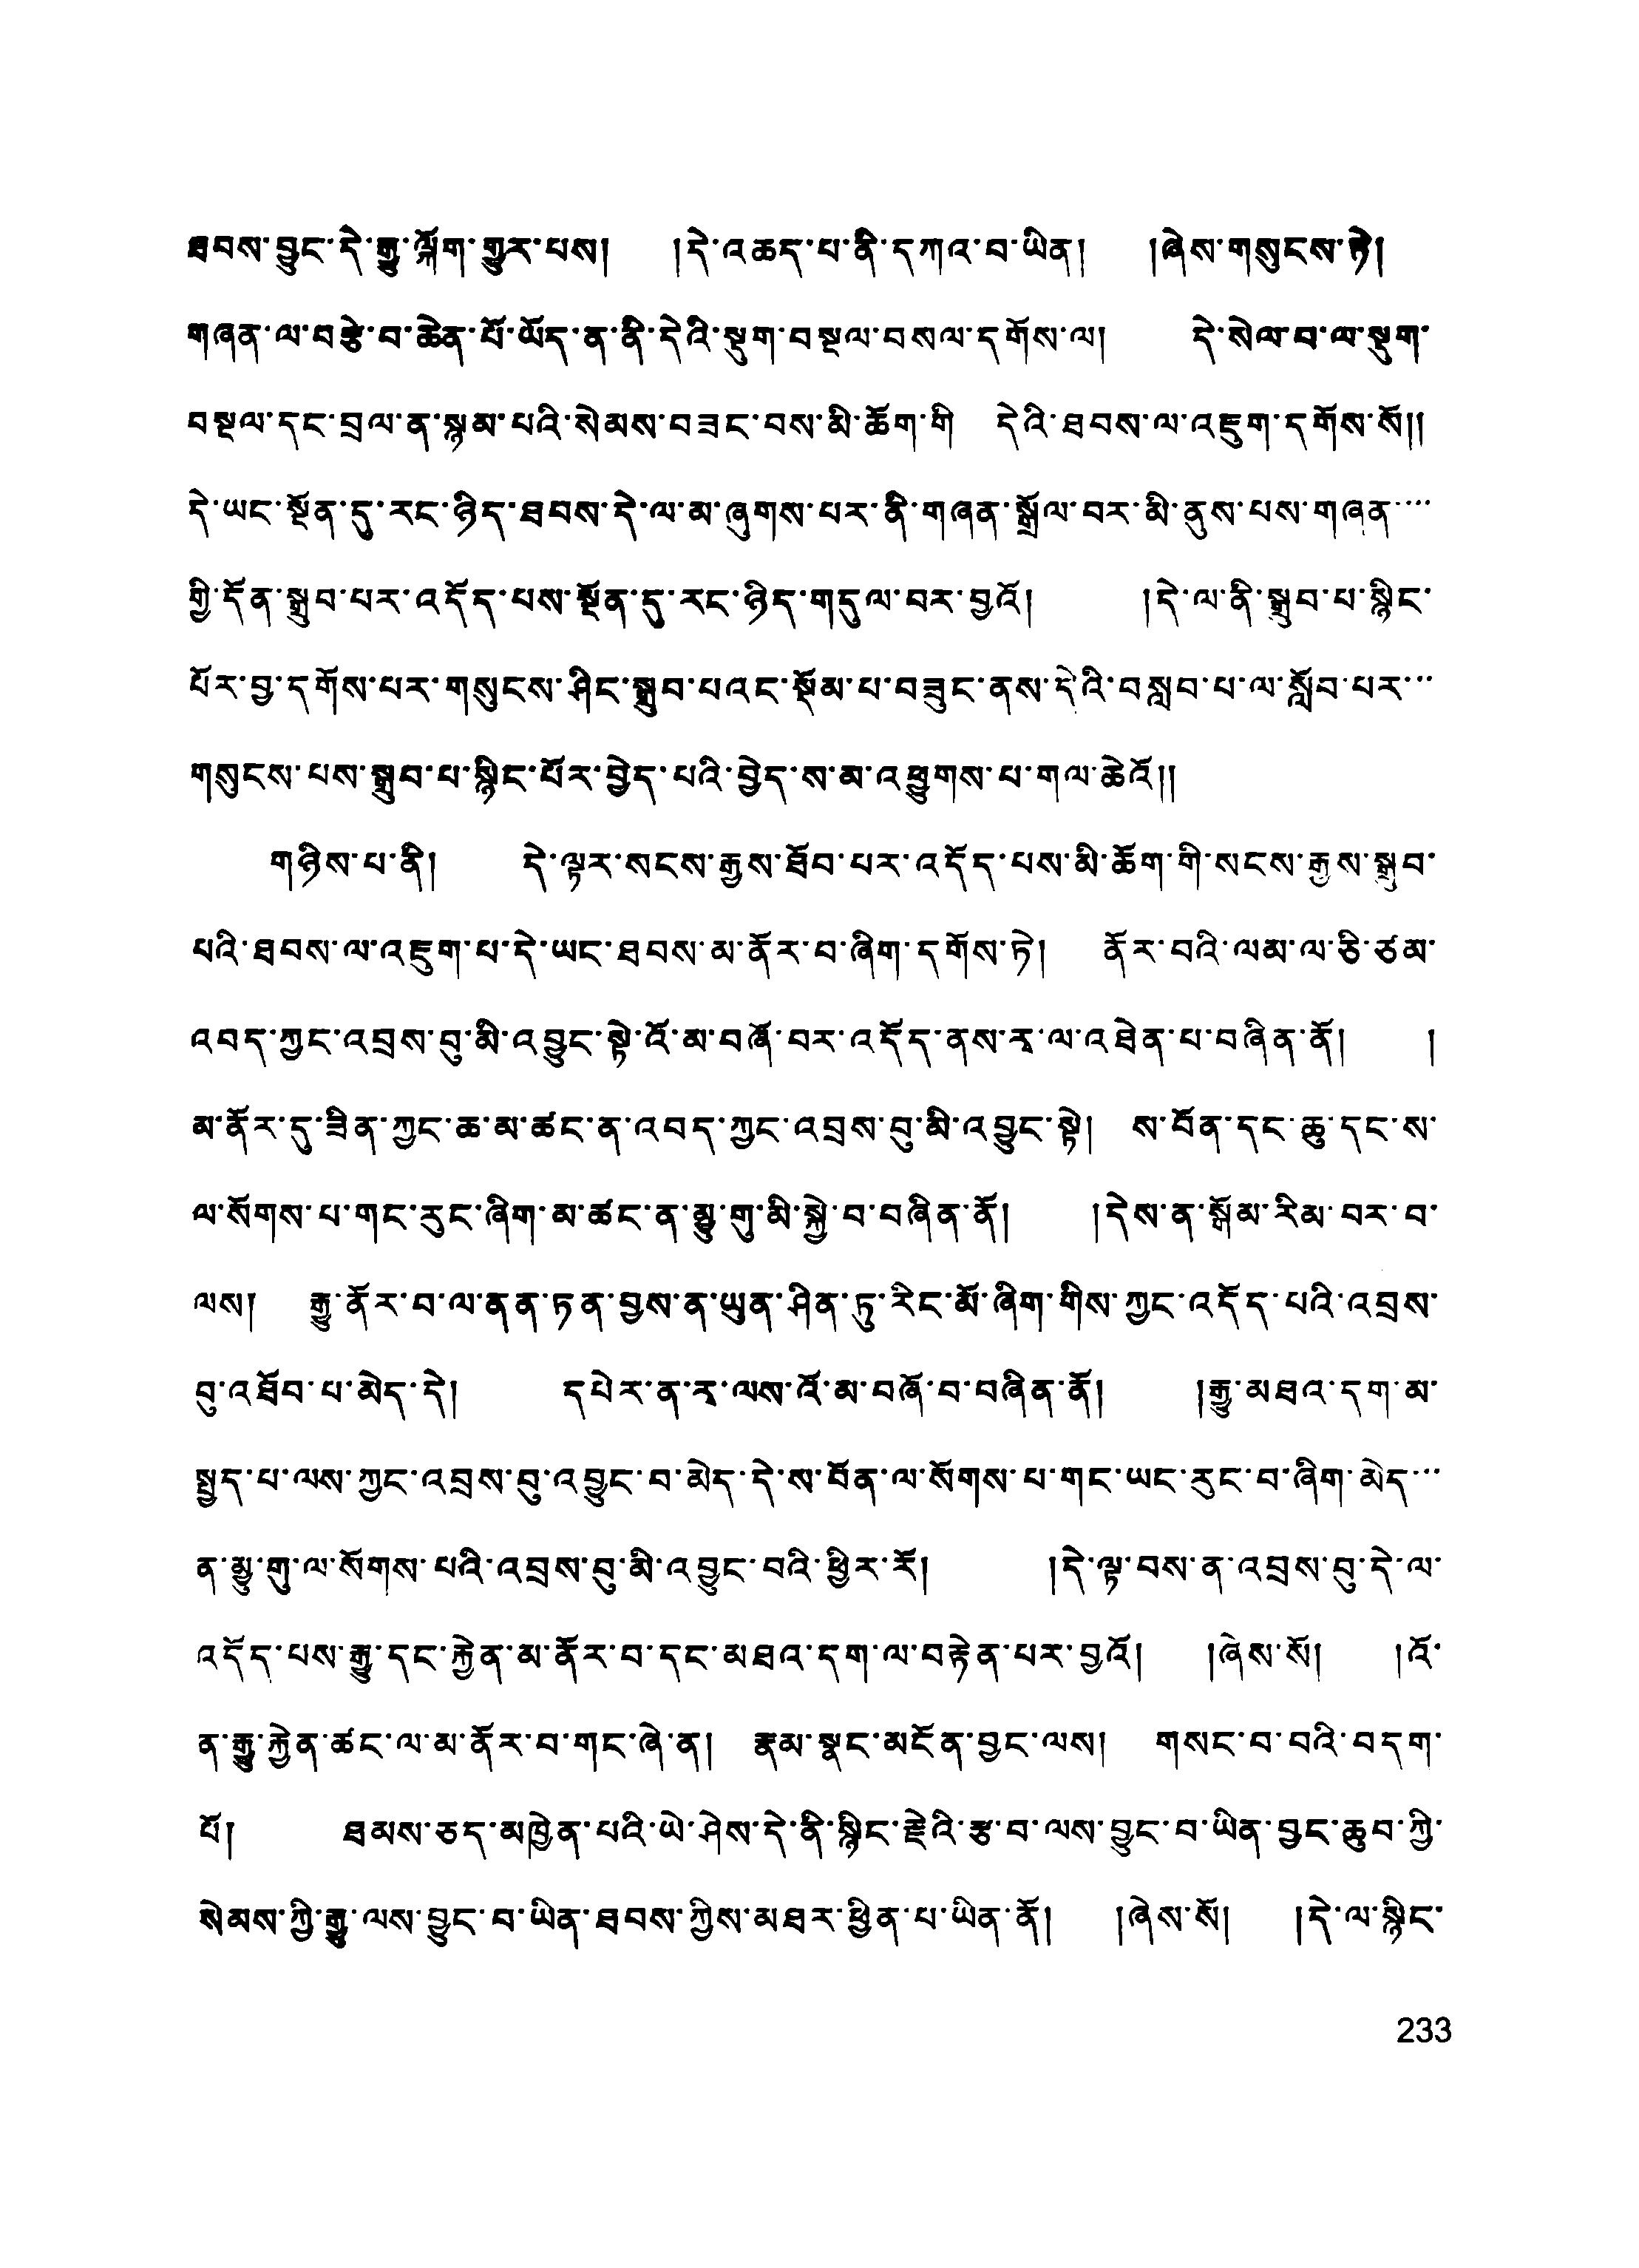 ཐབས་བྱུང་དེ་རྒྱུ་ལྐོག་གྱུར་པས། །དེ་འཆད་པ་ནི་དཀའ་བ་ཡིན། །ཞེས་གསུངས་ཏེ།
གཞན་ལ་བརྩེ་བ་ཆེན་པོ་ཡོད་ན་ནི་དེའི་སྡུག་བསྔལ་བསལ་དགོས་ལ། དེ་སེལ་བ་ལ་སྡུག་
བསྔལ་དང་བྲལ་ན་སྙམ་པའི་སེམས་བཟང་བས་མི་ཆོག་གི དེའི་ཐབས་ལ་འཇུག་དགོས་སོ།།
དེ་ཡང་སྔོན་དུ་རང་ཉིད་ཐབས་དེ་ལ་མ་ཞུགས་པར་ནི་གཞན་སྒྲོལ་བར་མི་ནུས་པས་གཞན་་་་
གྱི་དོན་སྒྲུབ་པར་འདོད་པས་སྔོན་དུ་རང་ཉིད་གདུལ་བར་བྱའོ། །དེ་ལ་ནི་སྒྲུབ་པ་སྙིང་
པོར་བྱ་དགོས་པར་གསུངས་ཤིང་སྒྲུབ་པའང་སྡོམ་པ་བཟུང་ནས་དེའི་བསླབ་པ་ལ་སློབ་པར་་་
གསུངས་པས་སྒྲུབ་པ་སྙིང་པོར་བྱེད་པའི་བྱེད་ས་མ་འཕྱུགས་པ་གལ་ཆེའོ།།
གཉིས་པ་ནི། དེ་ལྟར་སངས་རྒྱས་ཐོབ་པར་འདོད་པས་མི་ཆོག་གི་སངས་རྒྱས་སྒྲུབ་
པའི་ཐབས་ལ་འཇུག་པ་དེ་ཡང་ཐབས་མ་ནོར་བ་ཞིག་དགོས་ཏེ། ནོར་བའི་ལམ་ལ་ཅི་ཙམ་
འབད་ཀྱང་འབྲས་བུ་མི་འབྱུང་སྟེ་འོ་མ་བཞོ་བར་འདོད་ནས་རྭ་ལ་འཐེན་པ་བཞིན་ནོ། །
མ་ནོར་དུ་ཟིན་ཀྱང་ཆ་མ་ཚང་ན་འབད་ཀྱང་འབྲས་བུ་མི་འབྱུང་སྟེ། ས་བོན་དང་ཆུ་དང་ས་
ལ་སོགས་པ་གང་རུང་ཞིག་མ་ཚང་ན་མྱུ་གུ་མི་སྐྱེ་བ་བཞིན་ནོ། །དེས་ན་སྒོམ་རིམ་བར་བ་
ལས། རྒྱུ་ནོར་བ་ལ་ནན་ཏན་བྱས་ན་ཡུན་ཤིན་ཏུ་རིང་མོ་ཞིག་གིས་ཀྱང་འདོད་པའི་འབྲས་
བུ་འཐོབ་པ་མེད་དེ། དཔེར་ན་རྭ་ལས་འོ་མ་བཞོ་བ་བཞིན་ནོ། །རྒྱུ་མཐའ་དག་མ་
སྤྱད་པ་ལས་ཀྱང་འབྲས་བུ་འབྱུང་བ་མེད་དེ་ས་བོན་ལ་སོགས་པ་གང་ཡང་རུང་བ་ཞིག་མེད་་་
ན་མྱུ་གུ་ལ་སོགས་པའི་འབྲས་བུ་མི་འབྱུང་བའི་ཕྱིར་རོ། །དེ་ལྟ་བས་ན་འབྲས་བུ་དེ་ལ་
འདོད་པས་རྒྱུ་དང་རྐྱེན་མ་ནོར་བ་དང་མཐའ་དག་ལ་བརྟེན་པར་བྱའོ། །ཞེས་སོ། །འོ་
ན་རྒྱུ་རྐྱེན་ཚང་ལ་མ་ནོར་བ་གང་ཞེ་ན། རྣམ་སྣང་མངོན་བྱང་ལས། གསང་བ་བའི་བདག་
པོ། ཐམས་ཅད་མཁྱེན་པའི་ཡེ་ཤེས་དེ་ནི་སྙིང་རྗེའི་རྩ་བ་ལས་བྱུང་བ་ཡིན་བྱང་ཆུབ་ཀྱི་
སེམས་ཀྱི་རྒྱུ་ལས་བྱུང་བ་ཡིན་ཐབས་ཀྱིས་མཐར་ཕྱིན་པ་ཡིན་ནོ། །ཞེས་སོ། །དེ་ལ་སྙིང་
233